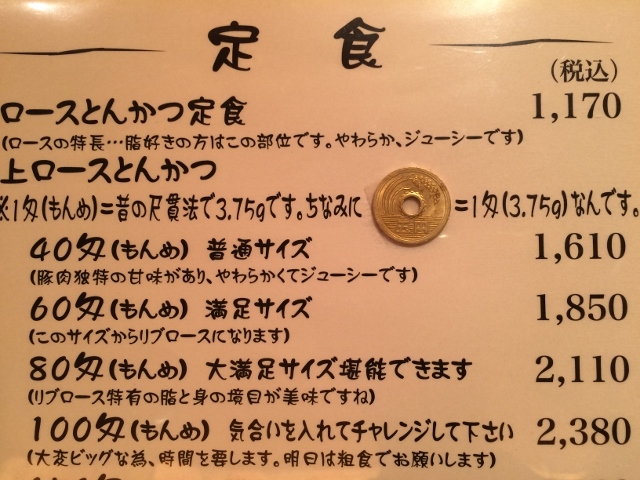 定食
(税込)
ロースとんかつ定食 1,170
(ロースの特長…脂好きの方はこの部位です。やわらか、ジューシーです)
上ロースとんかつ
※1匁(もんめ)=昔の尺貫法で3.75gです。ちなみに =1匁(3.75g)なんです。
40匁(もんめ) 普通サイズ 1,610
(豚肉独特の甘味があり、やわらかくてジューシーです)
60匁(もんめ) 満足サイズ 1,850
(このサイズからリブロースになります)
80匁(もんめ) 大満足サイズ堪能できます 2,110
(リブロース特有の脂と身の境目が美味ですね)
100匁(もんめ) 気合いを入れてチャレンジして下さい 2,380
(大変ビッグな為、時間を要します。明日は粗食でお願いします)